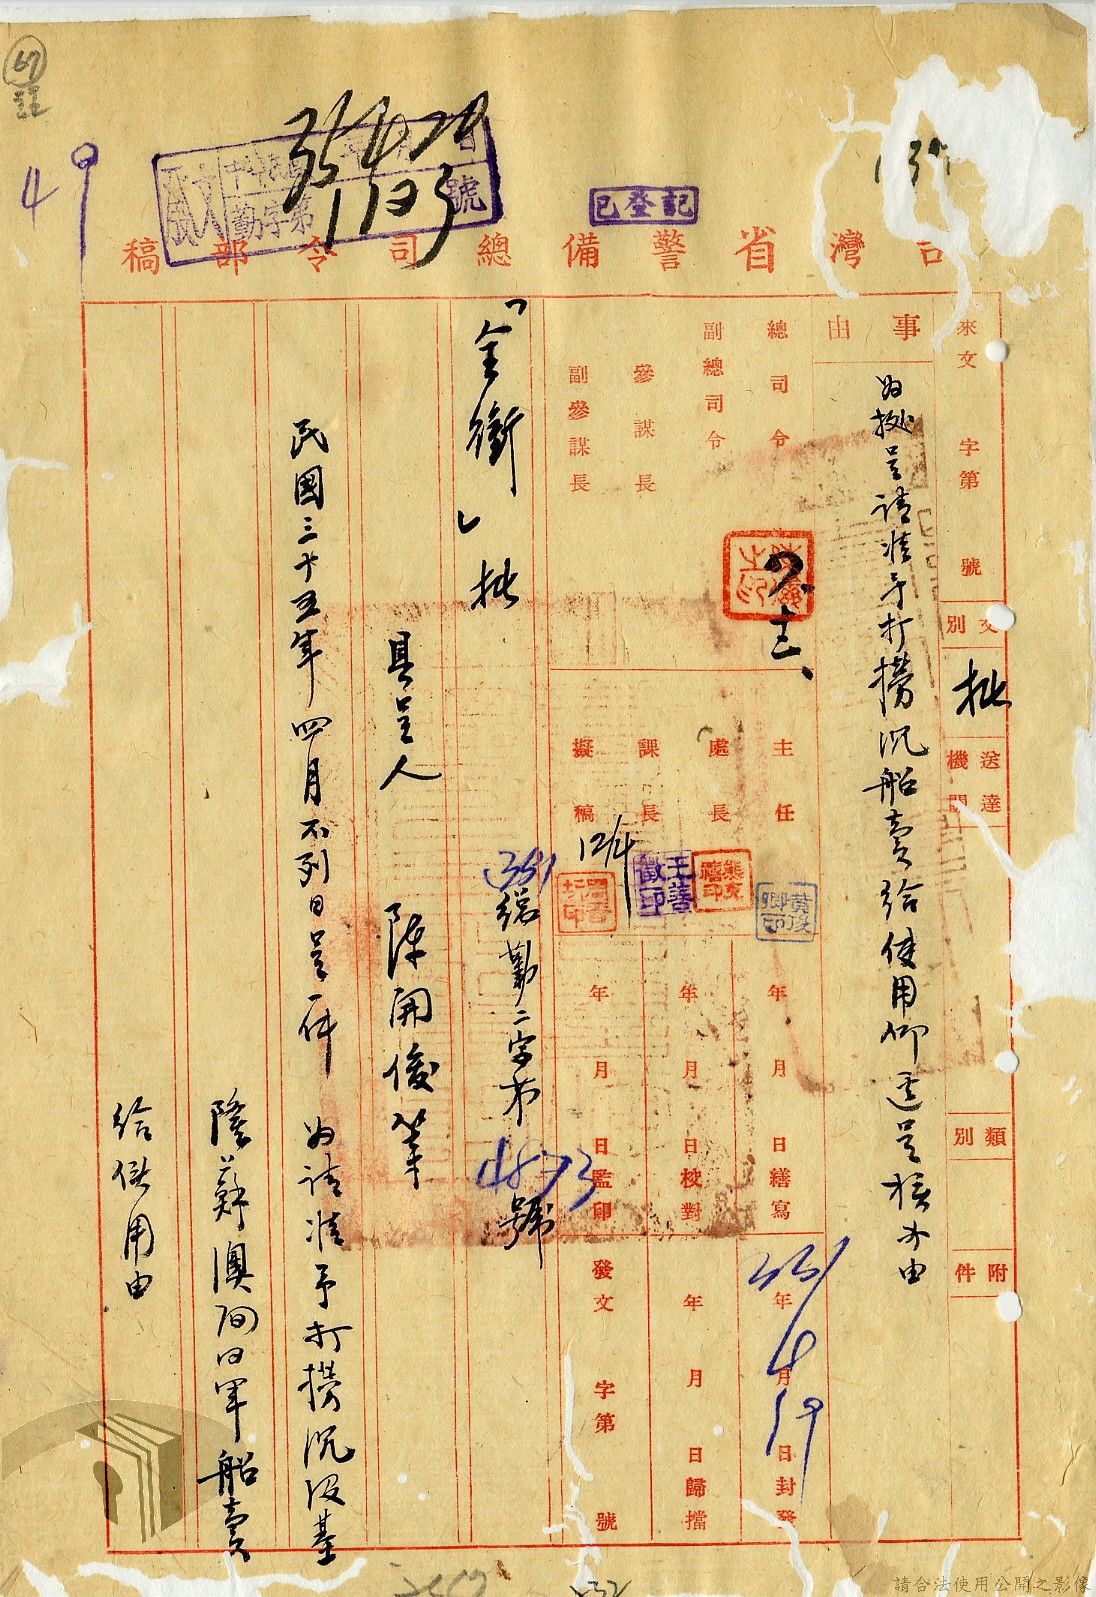 67
49
35 4 20
1103
號
已登記
137
台灣省警備總司令部稿
來文 字第 號
文別 批
送達機關
類別
附件
事由
為據呈請准予打撈沉船賣給使用仰逕呈核办由
總司令
副總司令
參謀長
副參謀長
主任
處長
課長
擬稿
12/4
黃
王善徵印
年 月 日繕寫
年 月 日校對
年 月 日監印
35年4月19日封發
年 月 日歸擋
發文 字第 號
「全銜」批
(35)總勤二字第4873號
具呈人 陳開俊等
民國三十五年四月不列日呈一件 為請准予打撈沉沒基
隆蘇澳間日軍船賣
給供用由
請合法使用公開之影像